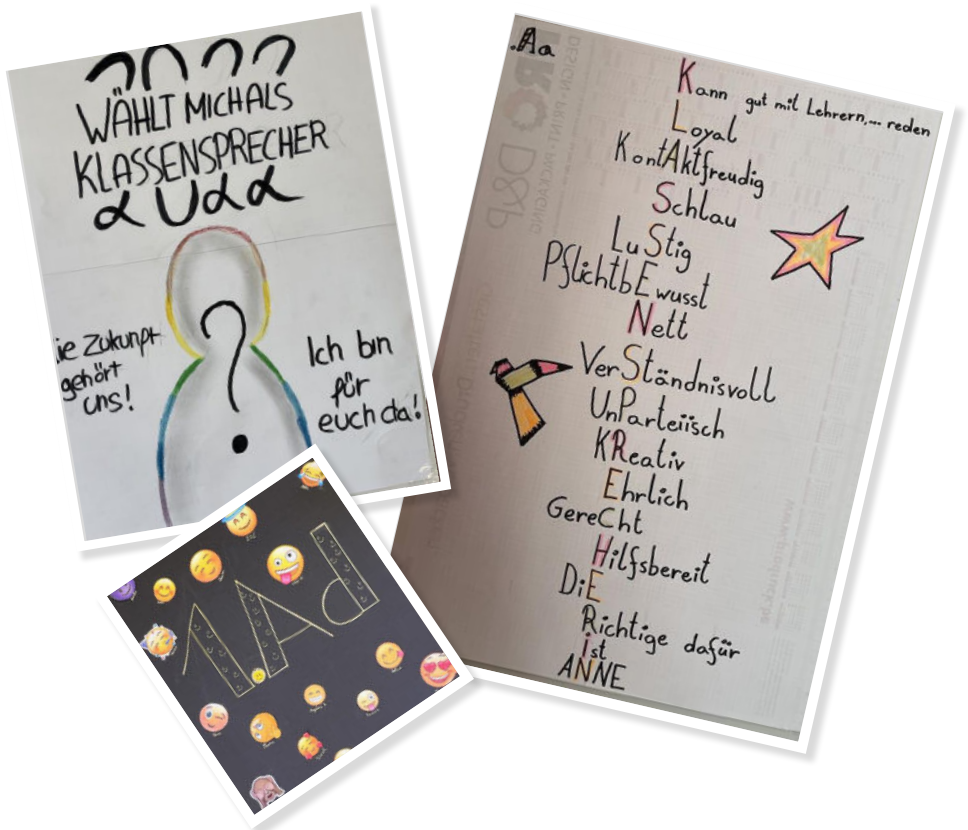 WÄHLT MICH ALS
KLASSENSPRECHER
ie Zukunft
gehört
uns!
?
Ich bin
für
euch da!
.Aa
Kann gut mit Lehrern,... reden
Loyal
KontAktfreudig
Schlau
LuStig
PflichtbEwusst
Nett
VerStändnisvoll
UnParteiisch
KReativ
Ehrlich
GereCht
Hilfsbereit
DiE
Richtige dafür
ist
ANNE
DESIGN · PRINT · PACKAGING
D&P